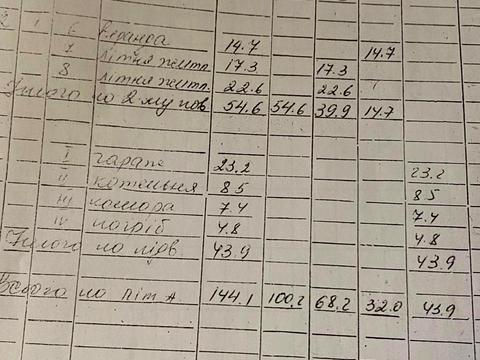 2 1 6 Веранда 14.7 14.7
7 літня житл. 17.3 17.3
8 літня житл. 22.6 22.6
Усього по 2му пов 54.6 54.6 39.9 14.7
I гараж 23.2 23.2
II котельня 8.5 8.5
III комора 7.4 7.4
IV погріб 4.8 4.8
Усього по підв. 43.9 43.9
Всього по літ А 144.1 100.2 68.2 32.0 43.9